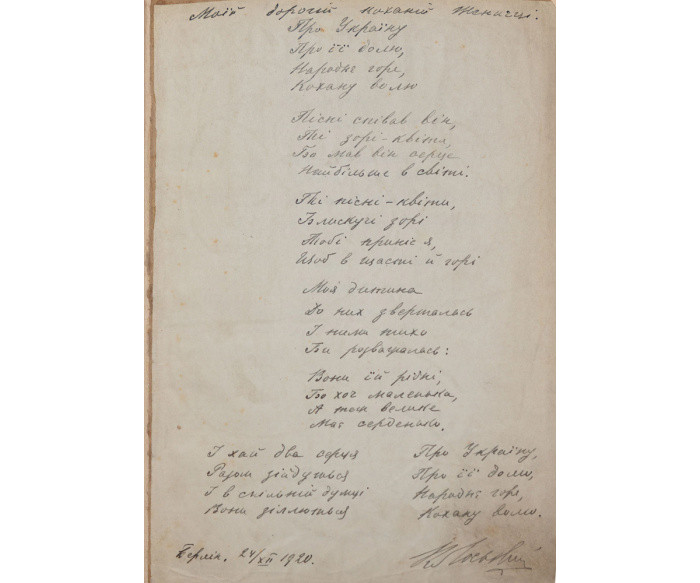 Моїй дорогій коханій Женичці.
Про Україну
Про її долю,
Народнє горе,
Кохану волю
Пісні співав він,
Ті зорі-квіти,
Бо мав він серце
Найбільше в світі.
Ті пісні-квіти,
Блискучі зорі
Тобі приніс я,
Щоб в щасті й горі
Моя дитина
До них зверталась
І ними тихо
Би розважалась:
Вони їй рідні,
Бо хоч маленька,
А так велике
Має серденько.
І хай два серця
Разом зійдуться
І в спільній думці
Вони зіллються
Про Україну,
Про її долю,
Народнє горе,
Кохану волю.
Берлін. 24/XII 1920.